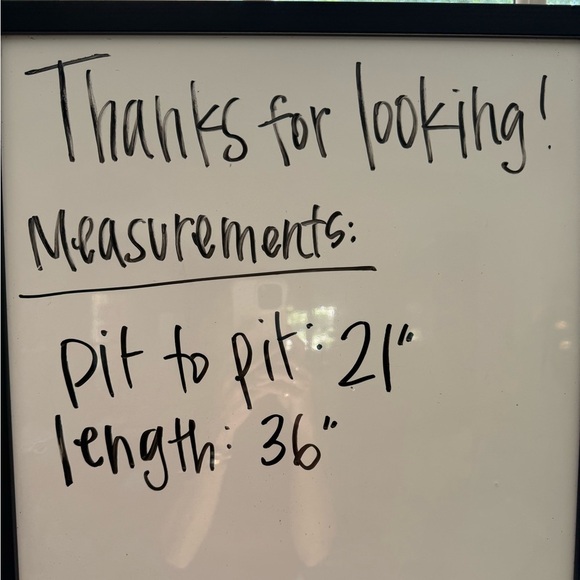 Thanks for looking!
Measurements:
pit to pit: 21"
length: 36"